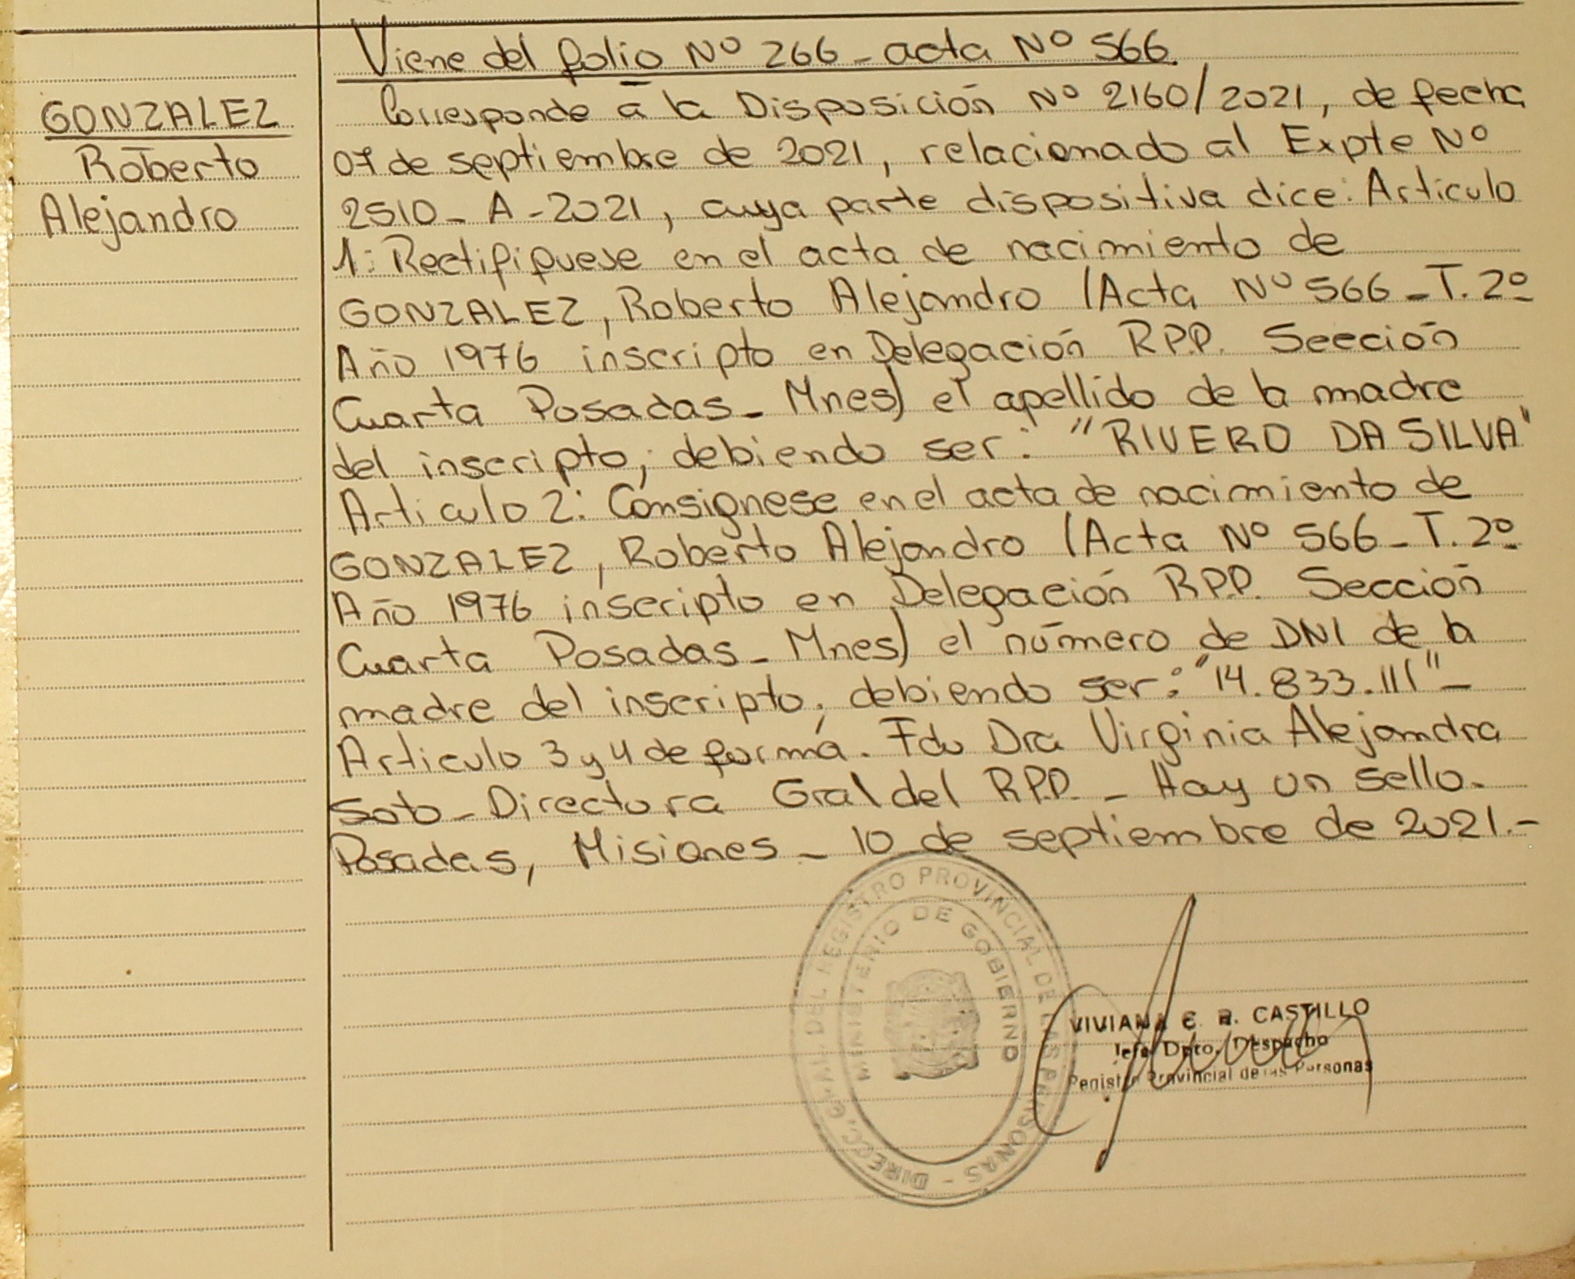 Viene del folio Nº 266 - acta Nº 566.
GONZALEZ
Roberto
Alejandro
Corresponde a la Disposición Nº 2160/2021, de fecha
07 de septiembre de 2021, relacionado al Expte Nº
2510 - A - 2021, cuya parte dispositiva dice: Articulo
1: Rectifipuese en el acta de nacimiento de
GONZALEZ, Roberto Alejandro (Acta Nº 566 - T. 2º
Año 1976 inscripto en Delegación RPP. Sección
Cuarta Posadas - Mnes) el apellido de la madre
del inscripto, debiendo ser: "RIVERO DA SILVA"
Articulo 2: Consignese en el acta de nacimiento de
GONZALEZ, Roberto Alejandro (Acta Nº 566 - T. 2º
Año 1976 inscripto en Delegación RPP. Sección
Cuarta Posadas - Mnes) el número de DNI de la
madre del inscripto, debiendo ser: "14.833.111" -
Articulo 3 y 4 de forma. Fdo Dra Virginia Alejandra
Soto - Directora Gral del RPP. - Hay un sello.
Posadas, Misiones - 10 de septiembre de 2021.-
DIRECC. GRAL. DEL REGISTRO PROVINCIAL DE LAS PERSONAS -
MINISTERIO DE GOBIERNO
VIVIANA E. R. CASTILLO
Jefa Dpto. Despacho
Registro Provincial de las Personas